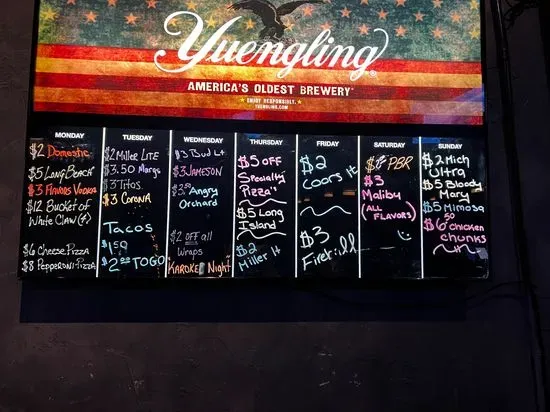 Yuengling
AMERICA'S OLDEST BREWERY
ENJOY RESPONSIBLY.
YUENGLING.COM
MONDAY
$2 Domestic
$5 LONG BEACH
$3 FLAVORS VODKA
$12 BUCKET OF
WHITE CLAW (4)
$6 CHEESE PIZZA
$8 PEPPERONI PIZZA
TUESDAY
$2 MILLER LITE
$3.50 Margs
$3 TITOS
$3 CORONA
TACOS
$1.50
$2.00 TOGO
WEDNESDAY
$3 Bud Lt
$3 JAMESON
$3.50 Angry
Orchard
$2 OFF all
Wraps
KAROKE Night
THURSDAY
$5 OFF
Specialty
Pizza's
$5 Long
Island
$2
Miller lt
FRIDAY
$2
Coors lt
$3
Fireball
SATURDAY
PBR
$3
Malibu
(ALL
FLAVORS)
SUNDAY
$2 Mich
Ultra
$5 Bloody
Mary
$5 Mimosa
$6.50 chicken
chonks